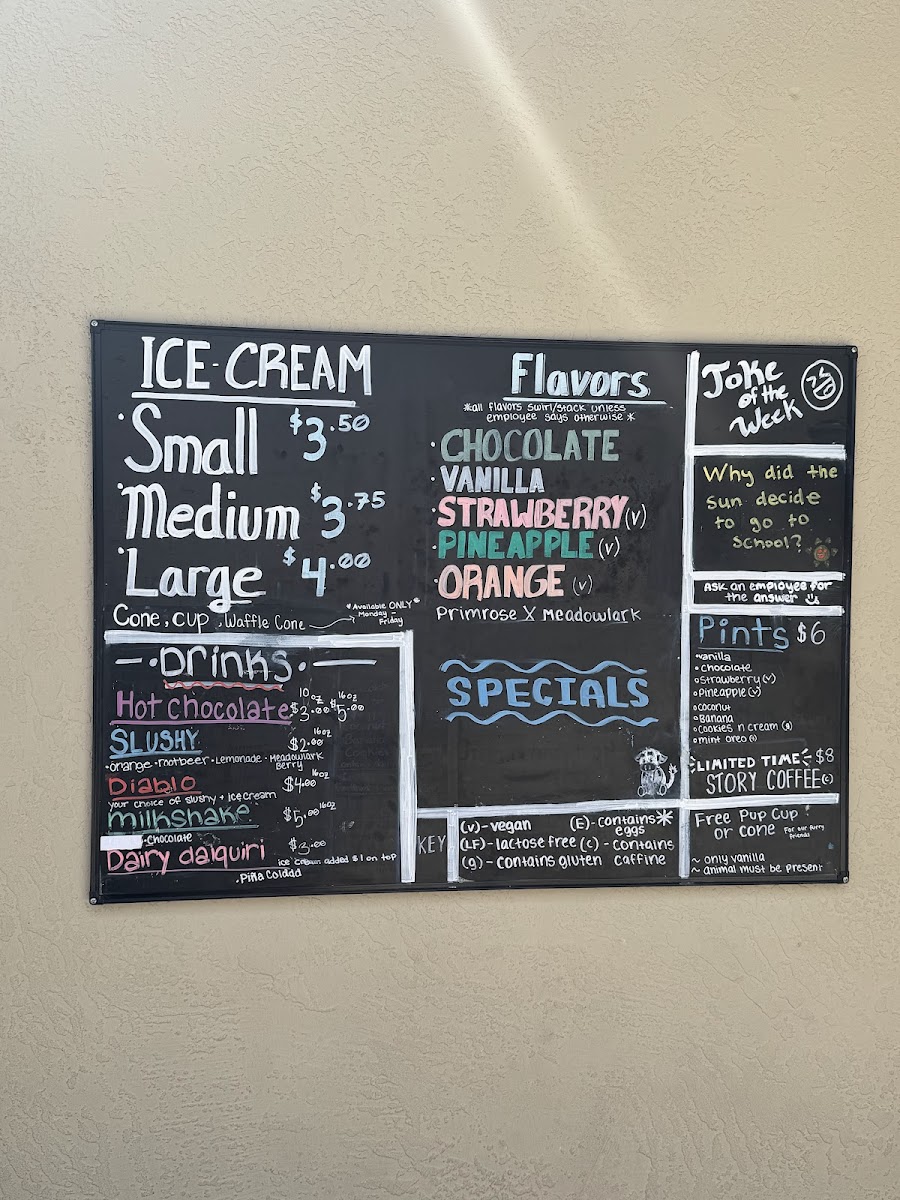 ICE-CREAM
· Small $3.50
· Medium $3.75
· Large $4.00
Cone, cup, Waffle Cone
*Available ONLY*
Monday -
Friday
Drinks
10oz 16oz
Hot chocolate $3.00 $5.00
SLUSHY $2.00 16oz
·orange ·rootbeer ·Lemonade ·Meadowlark
Berry
Diablo $4.00 16oz
your choice of slushy + ice cream
milkshake $5.00 16oz
·Chocolate
Dairy daiquiri $3.00
ice cream added $1 on top
·Piña Colada
Flavors
*all flavors swirl/stack unless
employee says otherwise *
·CHOCOLATE
·VANILLA
·STRAWBERRY (v)
·PINEAPPLE (v)
·ORANGE (v)
Primrose X Meadowlark
SPECIALS
KEY
(v)-vegan (E)-contains*
eggs
(LF)-lactose free (c) - contains
(g) - contains gluten caffine
Joke
of the
Week
Why did the
sun decide
to go to
school?
Ask an employee for
the answer
Pints $6
·vanilla
·chocolate
·strawberry (v)
·pineapple (v)
·coconut
·Banana
·cookies n cream (g)
·mint oreo
LIMITED TIME $8
STORY COFFEE (c)
Free Pup Cup
or cone For our furry
friends
~ only vanilla
~ animal must be present